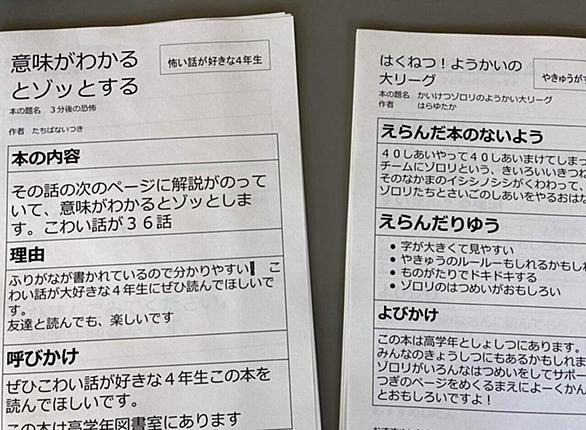 意味がわかる
とゾッとする
怖い話が好きな４年生
本の題名　３分後の恐怖
作者　たちばないつき
本の内容
その話の次のページに解説がのって
いて、意味がわかるとゾッとしま
す。こわい話が３６話
理由
ふりがなが書かれているので分かりやすい　こ
わい話が大好きな４年生にぜひ読んでほしいで
す。
友達と読んでも、楽しいです
呼びかけ
ぜひこわい話が好きな４年生この本を
読んでほしいです。
この本は高学年図書室にあります
はくねつ！ようかいの
大リーグ
やきゅうがす
本の題名　かいけつゾロリのようかい大リーグ
作者　はらゆたか
えらんだ本のないよう
４０しあいやって４０しあいまけてしまっ
チームにゾロリという、きいろいきつね
そのなかまのイシシノシシがくわわって、
ゾロリたちとさいごのしあいをやるおはな
えらんだりゆう
• 字が大きくて見やすい
• やきゅうのルールーもしれるかもしれ
• ものがたりでドキドキする
• ゾロリのはつめいがおもしろい
よびかけ
この本は高学年としょしつにあります。
みんなのきょうしつにもあるかもしれま
ゾロリがいろんなはつめいをしてサポー
つぎのページをめくるまえによーくかん
とおもしろいですよ！